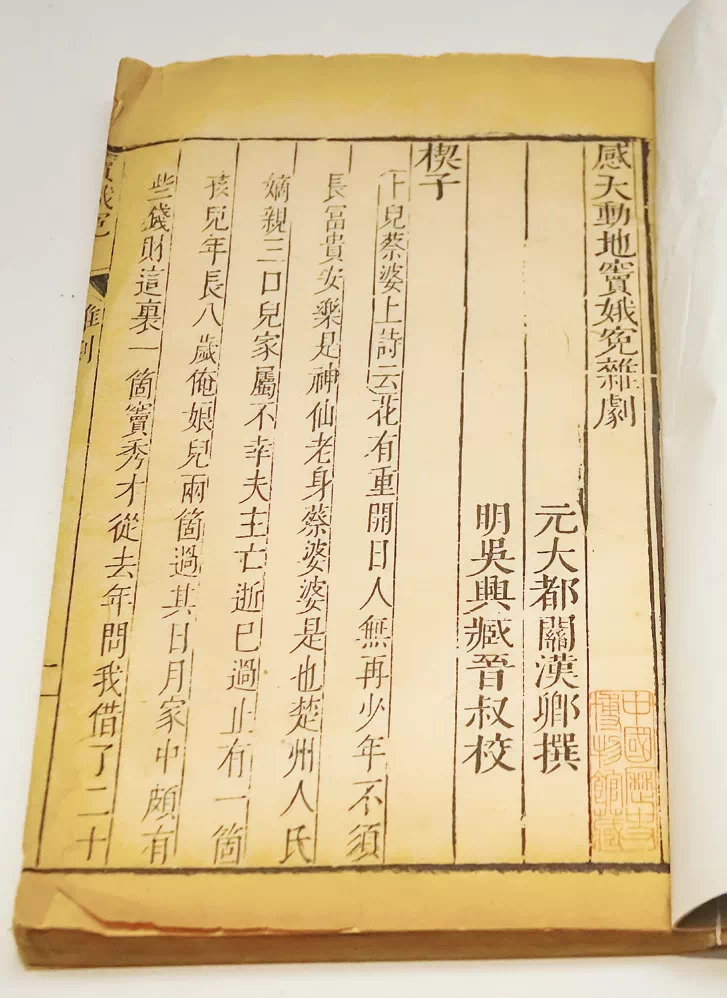 感天動地竇娥冤雜劇
元大都關漢卿撰
明吳興臧晉叔校
楔子
卜兒蔡婆上詩云花有重開日人無再少年不須
長富貴安樂是神仙老身蔡婆婆是也楚州人氏
嫡親三口兒家屬不幸夫主亡逝已過止有一箇
孩兒年長八歲俺娘兒兩箇過其日月家中頗有
些錢財這裏一箇竇秀才從去年問我借了二十
竇娥冤
雜劇
一
中國歷史
博物館藏